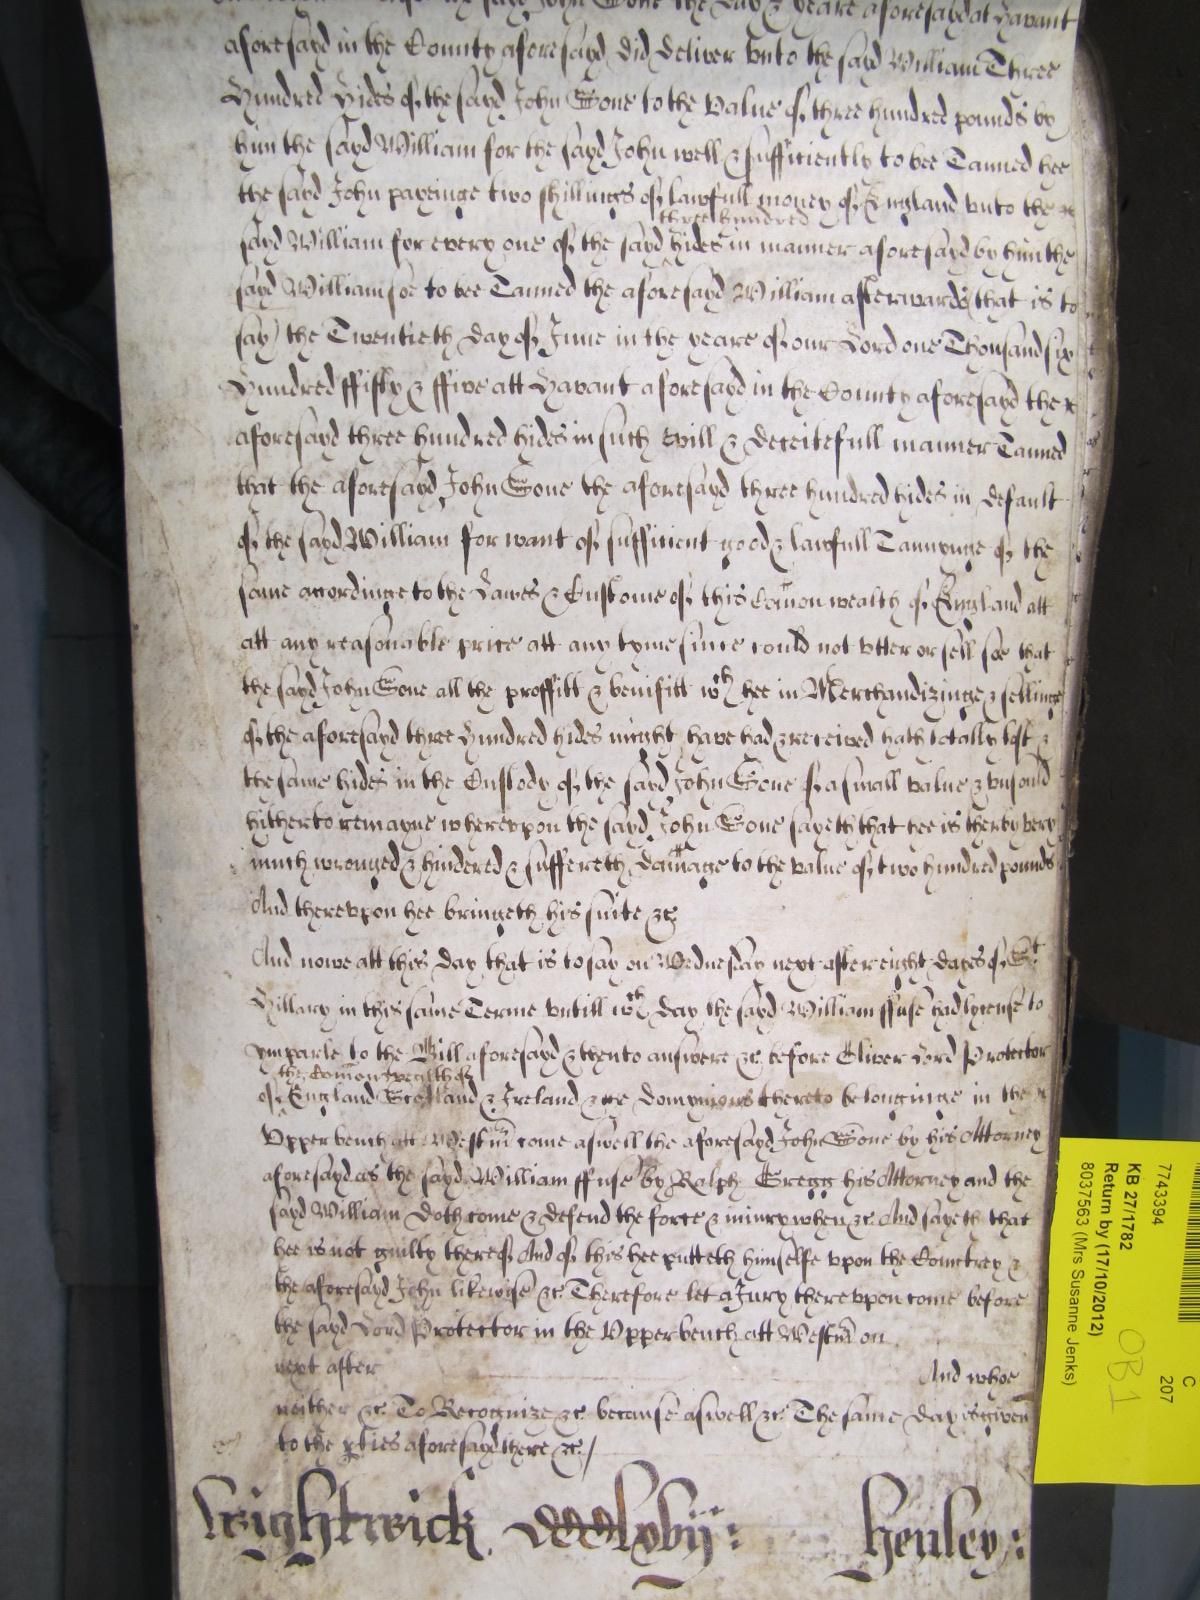 the sayd John Gone the day & yeare aforesayd at Havant
aforesayd in the County aforesayd did deliver vnto the sayd William Three
Hundred Hides of the sayd John Gone to the value of three hundred pounds by
him the sayd William for the sayd John well & sufficiently to bee Tanned hee
the sayd John payeinge two shillings of lawfull money of England vnto the
three hundred
sayd William for every one of the sayd hides in manner aforesayd by him the
sayd William soe to bee Tanned the aforesayd William afterwards (that is to
say) the Twentieth day of June in the yeare of our Lord one Thousand six
Hundred ffifty & ffive att Havant aforesayd in the County aforesayd the
aforesayd three hundred hides in such evill & deceitefull manner Tanned
that the aforesayd John Gone the aforesayd three hundred hides in default
of the sayd William for want of sufficient good & lawfull Tannynge of the
same accordinge to the Lawes & Custome of this Comon wealth of England att
att any reasonable price att any tyme since could not vtter or sell soe that
the sayd John Gone all the proffitt & benifitt wch hee in Merchandizinge & sellinge
of the aforesayd three Hundred hides might have had & received hath totally lost &
the same hides in the Custody of the sayd John Gone of a small value & vnsould
hitherto remayne wherevpon the sayd John Gone sayeth that hee is therby very
much wronged & hindered & suffereth damage to the value of two hundred pounds
And therevpon hee bringeth his suite &c
And nowe att this day that is to say on Wednesday next after eight dayes of St
Hillary in this same Terme vntill wch day the sayd William ffuse had lycense to
ymparle to the Bill aforesayd & then to answere &c before Oliver Lord Protector
the Comonwealth of
of England Scotland & Ireland & the domynions thereto belonginge in the
Vpper bench att Westm come aswell the aforesayd John Gone by his Attorney
aforesayd as the sayd William ffuse by Ralph Gregg his Attorney and the
sayd William doth come & defend the force & iniury when &c And sayeth that
hee is not guilty thereof And of this hee putteth himselfe vpon the Countrey &
the aforesayd John likewise &c Therefore let a Jury therevpon come before
the sayd Lord Protector in the Vpper bench att Westm on
next after And whoe
neither &c To Recognize &c because aswell &c The same day is given
to the pties aforesayd there &c /
Wightwick henley:
C
7743394 207
KB 27/1782
Return by (17/10/2012)
8037563 (Mrs Susanne Jenks)
OB1